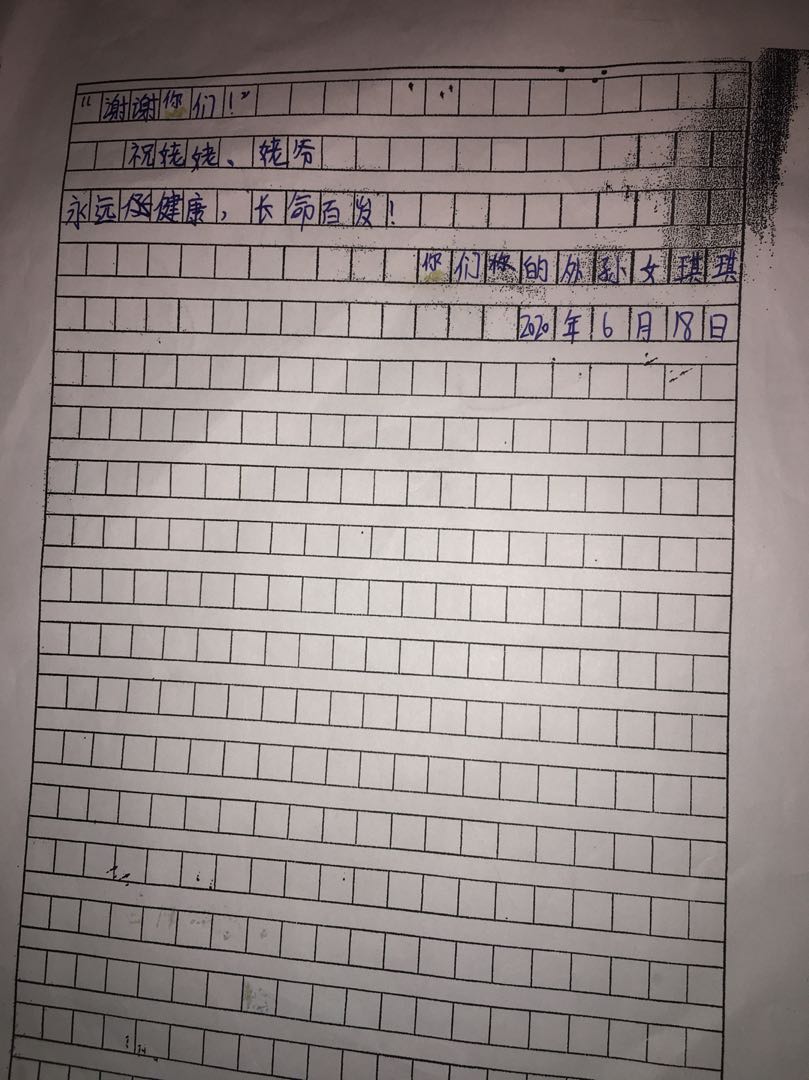 “谢谢你们！”
祝姥姥、姥爷
永远健康，长命百岁！
你们的外孙女琪琪
2020年6月18日